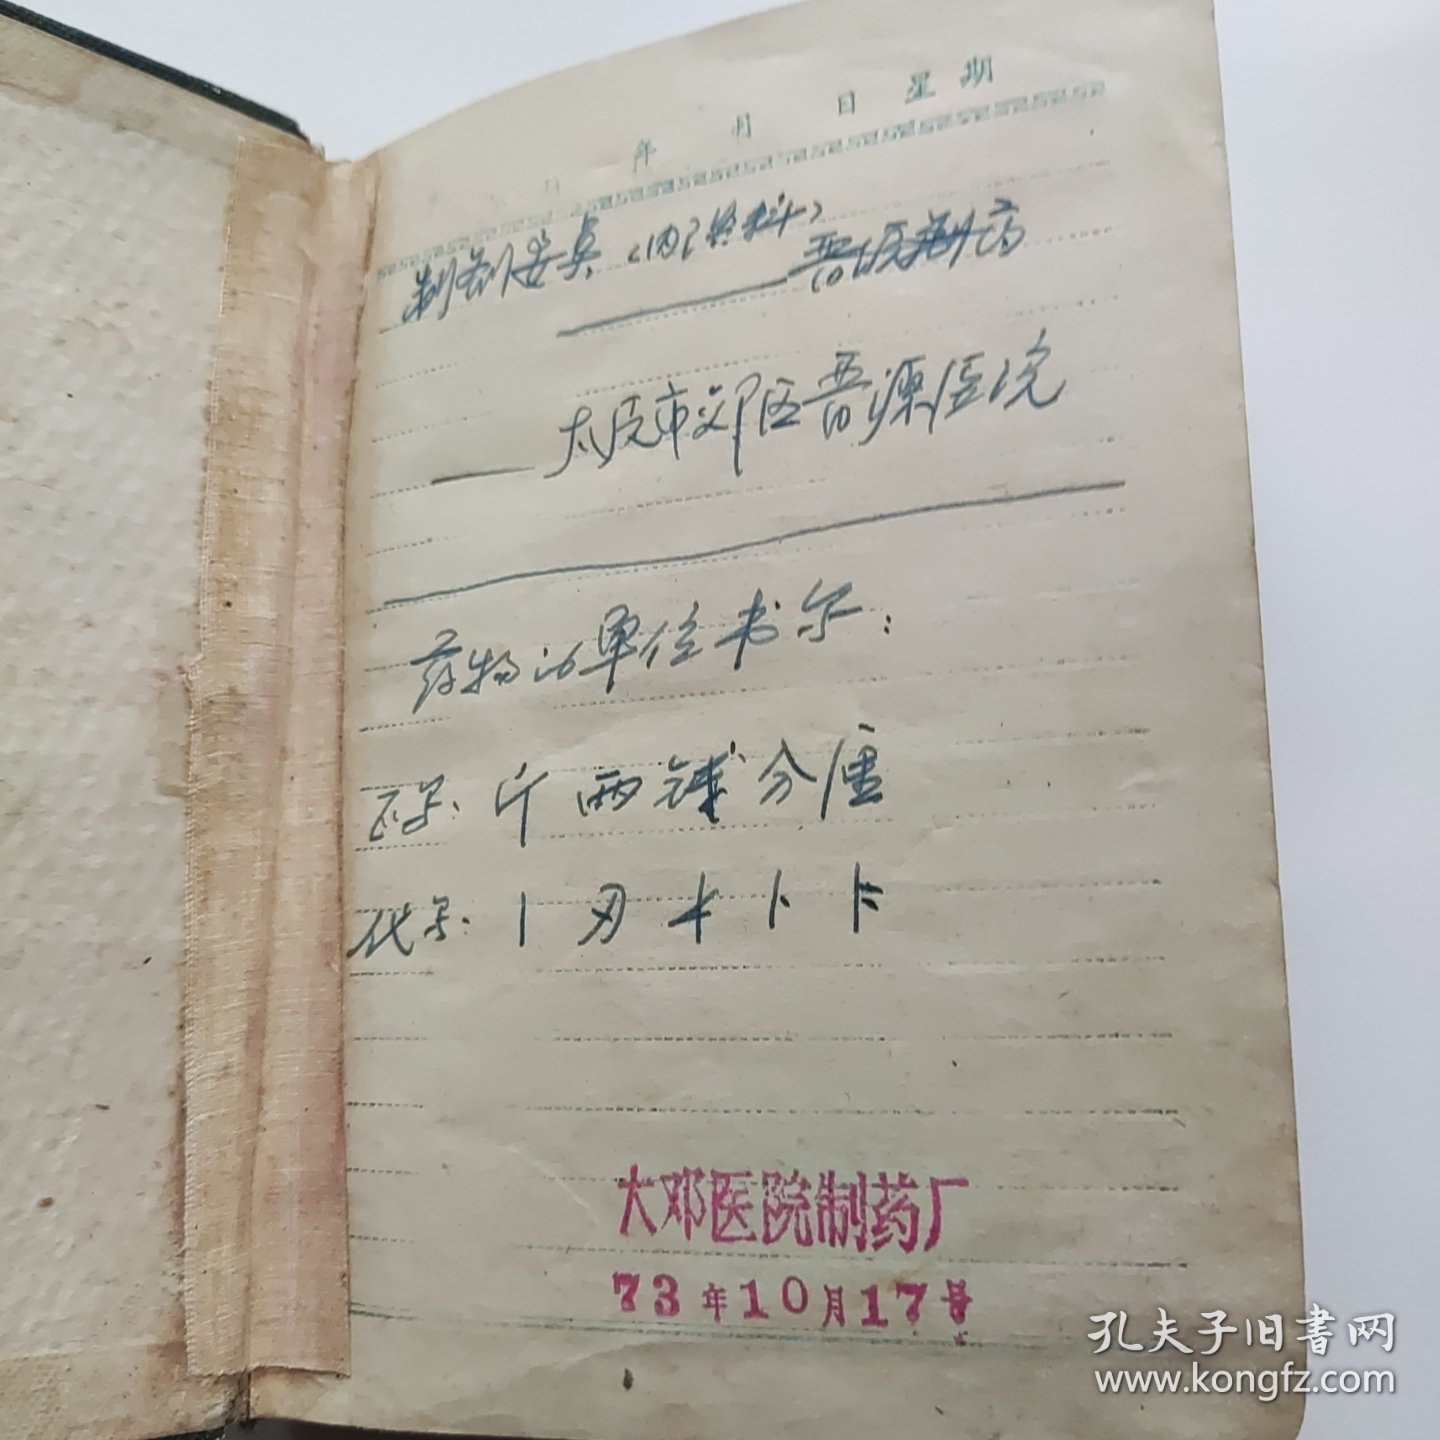 年 月 日 星期
制剂 〈内 资料〉
晋 医 制药
太原市郊区晋源医院
药物的单位书示:
正号: 斤 两 钱 分 厘
代号: 丨 刃
太郊医院制药厂
73年10月17号
孔夫子旧書网
www.kongfz.com